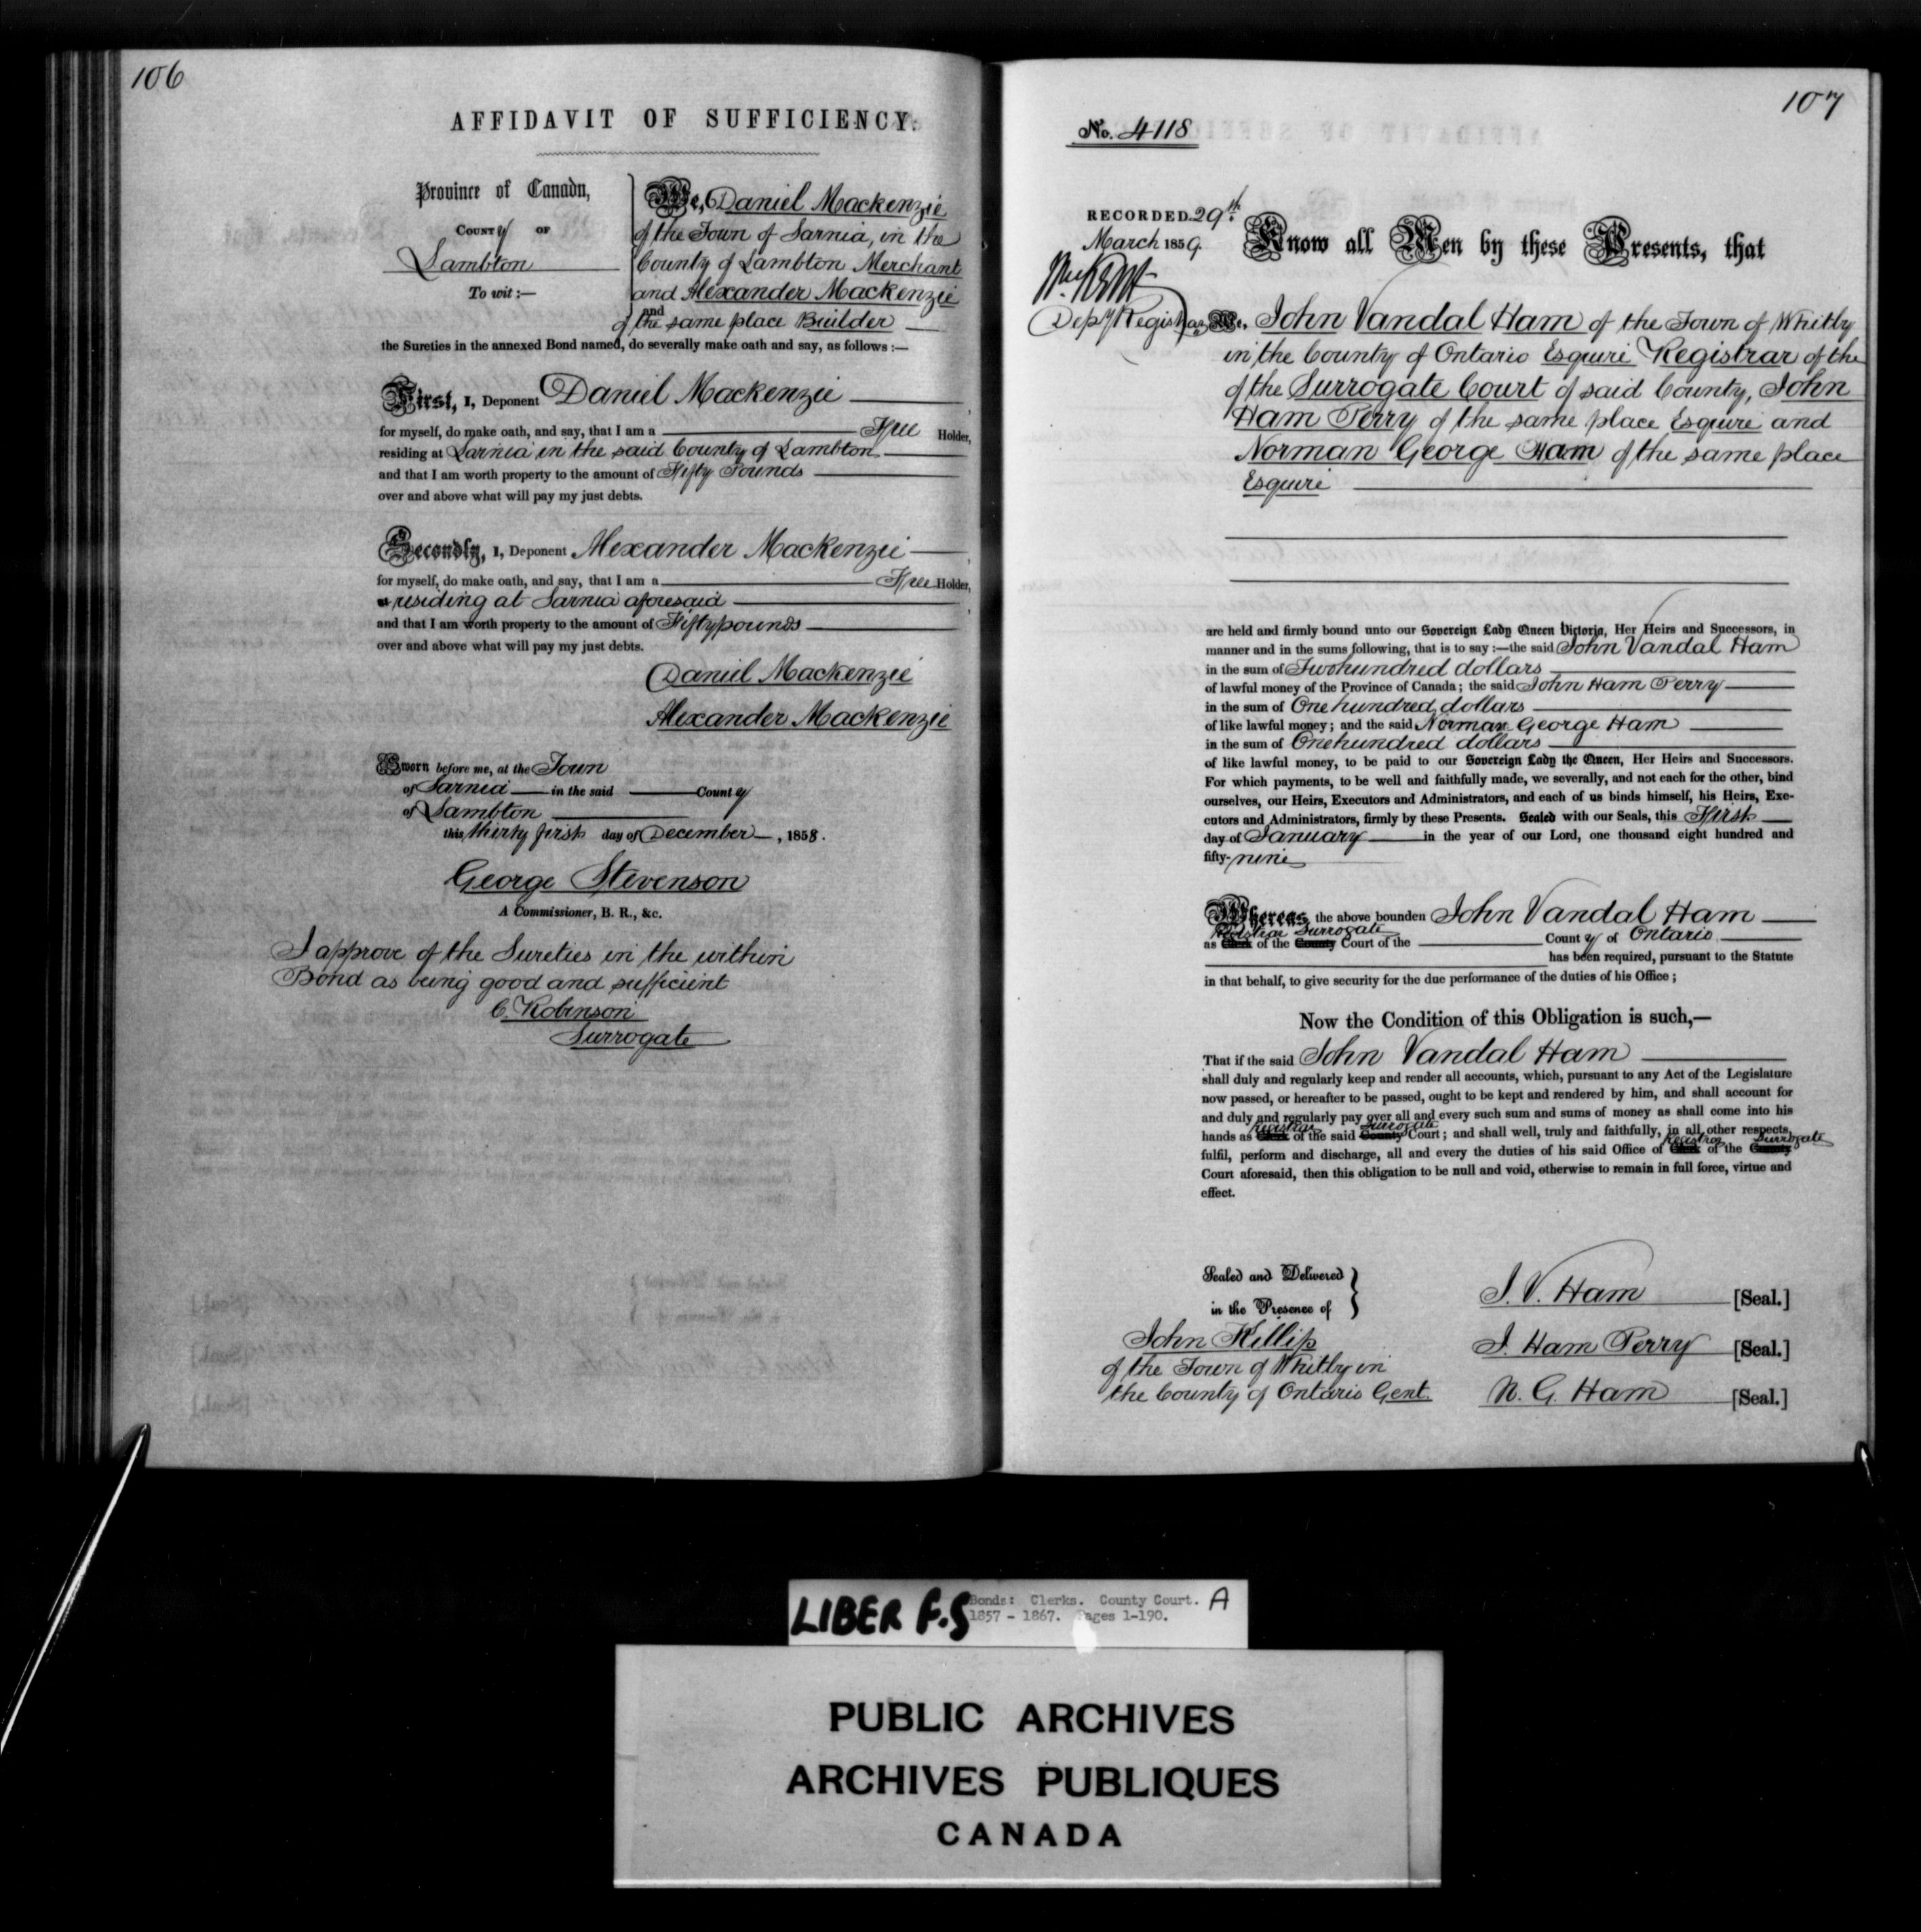 106
AFFIDAVIT OF SUFFICIENCY.
Province of Canada,
County OF
Lambton
To wit:—
We, Daniel Mackenzie
of the Town of Sarnia, in the
County of Lambton Merchant
and Alexander Mackenzie
and
of the same place Builder
the Sureties in the annexed Bond named, do severally make oath and say, as follows:—
First, I, Deponent Daniel Mackenzie
for myself, do make oath, and say, that I am a Free Holder,
residing at Sarnia in the said County of Lambton
and that I am worth property to the amount of Fifty Pounds
over and above what will pay my just debts.
Secondly, I, Deponent Alexander Mackenzie
for myself, do make oath, and say, that I am a Free Holder,
residing at Sarnia aforesaid
and that I am worth property to the amount of Fifty pounds
over and above what will pay my just debts.
Daniel Mackenzie
Alexander Mackenzie
Sworn before me, at the Town
of Sarnia in the said County
of Lambton
this thirty first day of December, 1858.
George Stevenson
A Commissioner, B. R., &c.
I approve of the Sureties in the within
Bond as being good and sufficient
C. Robinson
Surrogate
107
No. 4118
RECORDED 29th
March 1859.
Depy Registrar
Know all Men by these Presents, that
We, John Vandal Ham of the Town of Whitby
in the County of Ontario Esquire Registrar of the
of the Surrogate Court of said County, John
Ham Perry of the same place Esquire and
Norman George Ham of the same place
Esquire
are held and firmly bound unto our Sovereign Lady Queen Victoria, Her Heirs and Successors, in
manner and in the sums following, that is to say:—the said John Vandal Ham
in the sum of Two hundred dollars
of lawful money of the Province of Canada; the said John Ham Perry
in the sum of One hundred dollars
of like lawful money; and the said Norman George Ham
in the sum of One hundred dollars
of like lawful money, to be paid to our Sovereign Lady the Queen, Her Heirs and Successors.
For which payments, to be well and faithfully made, we severally, and not each for the other, bind
ourselves, our Heirs, Executors and Administrators, and each of us binds himself, his Heirs, Exe-
cutors and Administrators, firmly by these Presents. Sealed with our Seals, this First
day of January in the year of our Lord, one thousand eight hundred and
fifty-nine
Whereas the above bounden John Vandal Ham
Registrar Surrogate
as Clerk of the County Court of the County of Ontario
has been required, pursuant to the Statute
in that behalf, to give security for the due performance of the duties of his Office;
Now the Condition of this Obligation is such,—
That if the said John Vandal Ham
shall duly and regularly keep and render all accounts, which, pursuant to any Act of the Legislature
now passed, or hereafter to be passed, ought to be kept and rendered by him, and shall account for
and duly and regularly pay over all and every such sum and sums of money as shall come into his
registrar Surrogate
hands as Clerk of the said County Court; and shall well, truly and faithfully, in all other respects,
registrar Surrogate
fulfil, perform and discharge, all and every the duties of his said Office of Clerk of the County
Court aforesaid, then this obligation to be null and void, otherwise to remain in full force, virtue and
effect.
Sealed and Delivered
in the Presence of
John Killip
of the Town of Whitby in
the County of Ontario Gent.
J. V. Ham [Seal.]
J. Ham Perry [Seal.]
N. G. Ham [Seal.]
LIBER F.S Bonds: Clerks. County Court. A
1857 - 1867. Pages 1-190.
PUBLIC ARCHIVES
ARCHIVES PUBLIQUES
CANADA